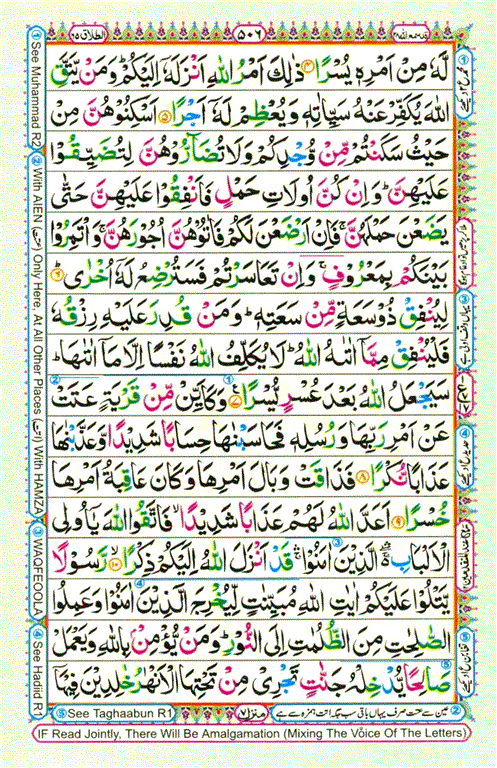 الطلاق ٦٥
٥٠٦
قد سمع الله ٢٨
لَّهٗ مِنْ اَمْرِهٖ يُسْرًا ﴿۴﴾ ذٰلِكَ اَمْرُ اللّٰهِ اَنْزَلَهٗۤ اِلَيْكُمْ ؕ وَمَنْ يَّتَّقِ
اللّٰهَ يُكَفِّرْ عَنْهُ سَيِّاٰتِهٖ وَيُعْظِمْ لَهٗۤ اَجْرًا ﴿۵﴾ اَسْكِنُوْهُنَّ مِنْ
حَيْثُ سَكَنْتُمْ مِّنْ وُّجْدِكُمْ وَلَا تُضَآرُّوْهُنَّ لِتُضَيِّقُوْا
عَلَيْهِنَّ ؕ وَاِنْ كُنَّ اُولَاتِ حَمْلٍ فَاَنْفِقُوْا عَلَيْهِنَّ حَتّٰى
يَضَعْنَ حَمْلَهُنَّ ۚ فَاِنْ اَرْضَعْنَ لَكُمْ فَاٰتُوْهُنَّ اُجُوْرَهُنَّ ۚ وَاْتَمِرُوْا
بَيْنَكُمْ بِمَعْرُوْفٍ ۚ وَاِنْ تَعَاسَرْتُمْ فَسَتُرْضِعُ لَهٗۤ اُخْرٰى ﴿۶﴾
لِيُنْفِقْ ذُوْ سَعَةٍ مِّنْ سَعَتِهٖ ؕ وَمَنْ قُدِرَ عَلَيْهِ رِزْقُهٗ
فَلْيُنْفِقْ مِمَّاۤ اٰتٰىهُ اللّٰهُ ؕ لَا يُكَلِّفُ اللّٰهُ نَفْسًا اِلَّا مَاۤ اٰتٰىهَا ؕ
سَيَجْعَلُ اللّٰهُ بَعْدَ عُسْرٍ يُّسْرًا ﴿۷﴾ وَكَاَيِّنْ مِّنْ قَرْيَةٍ عَتَتْ
عَنْ اَمْرِ رَبِّهَا وَرُسُلِهٖ فَحَاسَبْنٰهَا حِسَابًا شَدِيْدًا وَّعَذَّبْنٰهَا
عَذَابًا نُّكْرًا ﴿۸﴾ فَذَاقَتْ وَبَالَ اَمْرِهَا وَكَانَ عَاقِبَةُ اَمْرِهَا
خُسْرًا ﴿۹﴾ اَعَدَّ اللّٰهُ لَهُمْ عَذَابًا شَدِيْدًا ۙ فَاتَّقُوا اللّٰهَ يٰۤاُولِى
الْاَلْبَابِ ۛۖۚ الَّذِيْنَ اٰمَنُوْا ۛ قَدْ اَنْزَلَ اللّٰهُ اِلَيْكُمْ ذِكْرًا ﴿۱۰﴾ رَّسُوْلًا
يَّتْلُوْا عَلَيْكُمْ اٰيٰتِ اللّٰهِ مُبَيِّنٰتٍ لِّيُخْرِجَ الَّذِيْنَ اٰمَنُوْا وَعَمِلُوا
الصّٰلِحٰتِ مِنَ الظُّلُمٰتِ اِلَى النُّوْرِ ؕ وَمَنْ يُّؤْمِنْ بِاللّٰهِ وَيَعْمَلْ
صَالِحًا يُّدْخِلْهُ جَنّٰتٍ تَجْرِىْ مِنْ تَحْتِهَا الْاَنْهٰرُ خٰلِدِيْنَ فِيْهَاۤ
① See Muhammad R2 ② With AIEN (عتت) Only Here, At All Other Places With HAMZA ③ WAQFEOOLA ④ See Hadiid R1
⑤ See Taghaabun R1
منزل ٧
② عین سے عتت صرف یہاں باقی سب جگہ ہمزہ سے ہے
IF Read Jointly, There Will Be Amalgamation (Mixing The Voice Of The Letters)